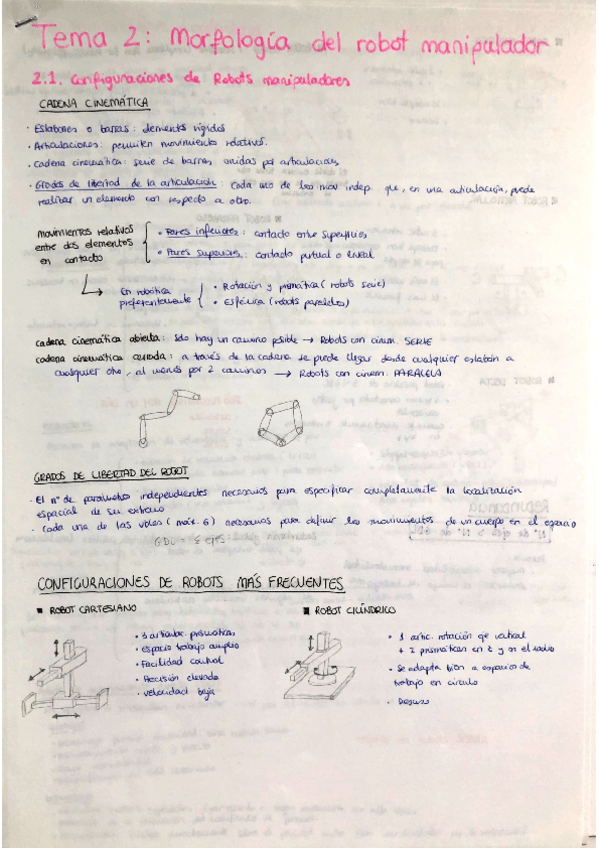 Tema 2: Morfología del robot manipulador
2.1. Configuraciones de Robots manipuladores
CADENA CINEMÁTICA
· Eslabones o barras: elementos rígidos
· Articulaciones: permiten movimientos relativos.
· Cadena cinemática: serie de barras unidas por articulaciones
· Grados de libertad de la articulación: cada uno de los mov indep. que, en una articulación, puede
realizar un elemento con respecto a otro.
movimientos relativos
entre dos elementos
en contacto
• Pares inferiores: contacto entre superficies
• Pares superiores: contacto puntual o lineal
En robótica
preferentemente
• Rotación y prismática (robots serie)
• Esférica (robots paralelos)
cadena cinemática abierta: solo hay un camino posible → Robots con cinem. SERIE
cadena cinemática cerrada: a través de la cadena se puede llegar desde cualquier eslabón a
cualquier otro, al menos por 2 caminos → Robots con cinem. PARALELA
GRADOS DE LIBERTAD DEL ROBOT
· El nº de parámetros independientes necesarios para especificar completamente la localización
espacial de su extremo
· Cada una de las (máx. 6) necesarios para definir los movimientos de un cuerpo en el espacio
CONFIGURACIONES DE ROBOTS MÁS FRECUENTES
■ ROBOT CARTESIANO
• 3 articular. prismáticas
• espacio trabajo amplio
• Facilidad control
• Precisión elevada
• velocidad baja
■ ROBOT CILÍNDRICO
• 1 artic. rotación eje vertical
+ 2 prismáticas en z y en el radio
• Se adapta bien a espacios de
trabajo en círculo
• Desuso